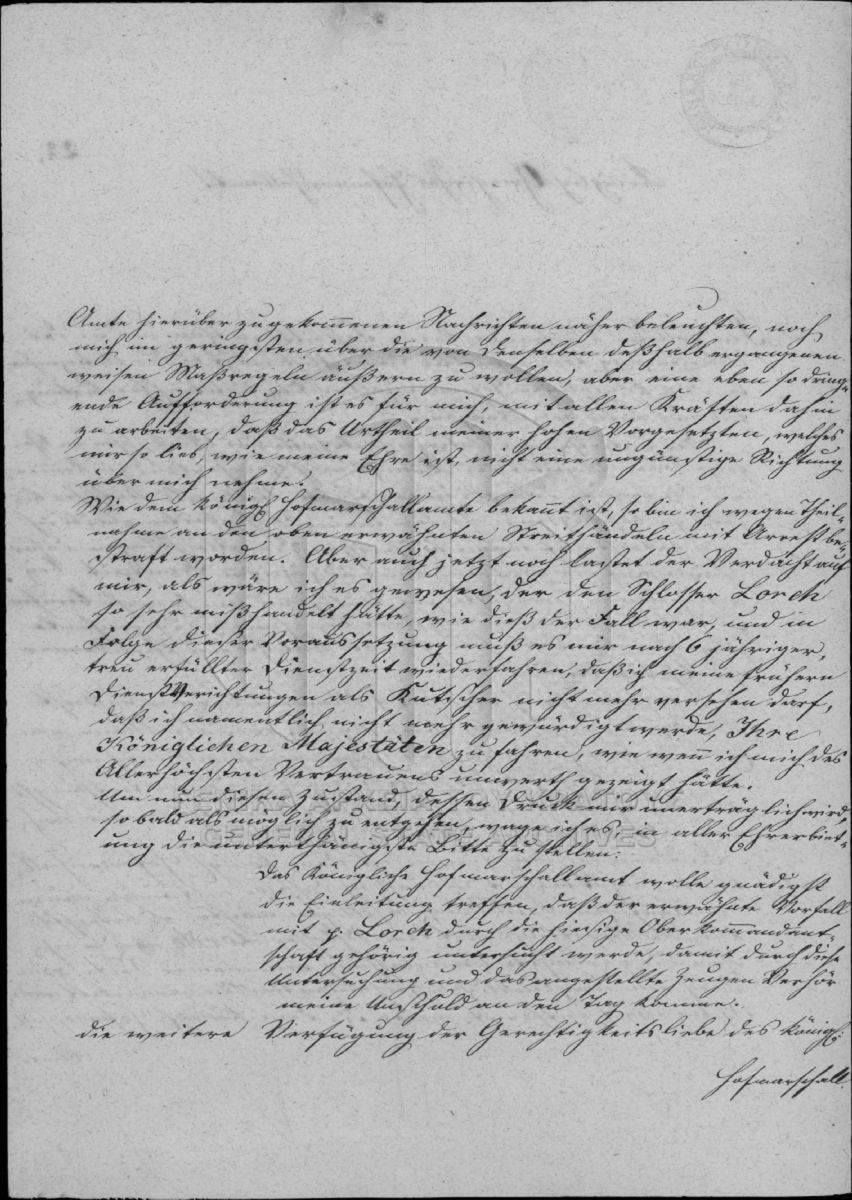 Amte hierüber zugekom̄enen Nachrichten näher beleuchten, noch
mich im geringsten über die von denselben deßhalb ergangenen
weisen Maßregeln äußern zu wollen, aber eine eben so dring=
ende Aufforderung ist es für mich, mit allen Kräften dahin
zu arbeiten, daß das Urtheil meiner hohen Vorgesetzten, welches
mir so lieb, wie meine Ehre ist, nicht eine ungünstige Richtung
über mich nehme.
Wie dem Königl. Hofmarschallamte bekan̄t ist, so bin ich wegen Theil=
nahme an den oben erwähnten Streithändeln mit Arrest be=
straft worden. Aber auch jetzt noch lastet der Verdacht auf
mir, als wäre ich es gewesen, der den Schlosser Lorch
so sehr mißhandelt hätte, wie dieß der Fall war, und in
Folge dieser Voraussetzung muß es mir nach 6 jähriger,
treu erfüllter Dienstzeit wiederfahren, daß ich meine frühern
DienstVerichtungen als Kutscher nicht mehr versehen darf,
daß ich namentlich nicht mehr gewürdigt werde, Ihre
Königlichen Majestäten zu fahren, wie wen̄ ich mich des
Allerhöchsten Vertrauens unwerth gezeigt hätte.
Um nun diesen Zustand, dessen Druck mir unerträglich wird,
so bald als möglich zu entgehen, wage ich es, in aller Ehrerbiet=
ung die unterthänigste Bitte zu stellen:
Das Königliche Hofmarschallamt wolle gnädigst
die Einleitung treffen, daß der erwähnte Vorfall
mit p. Lorch durch die hiesige Oberkom̄andant=
schaft gehörig untersucht werde, damit durch diese
Untersuchung und das angestellte Zeugen Verhör
meine Unschuld an den Tag komme.
die weitere Verfügung der Gerechtigkeitsliebe des Königl:
Hofmarschall.
GENERAL STATE ARCHIVES